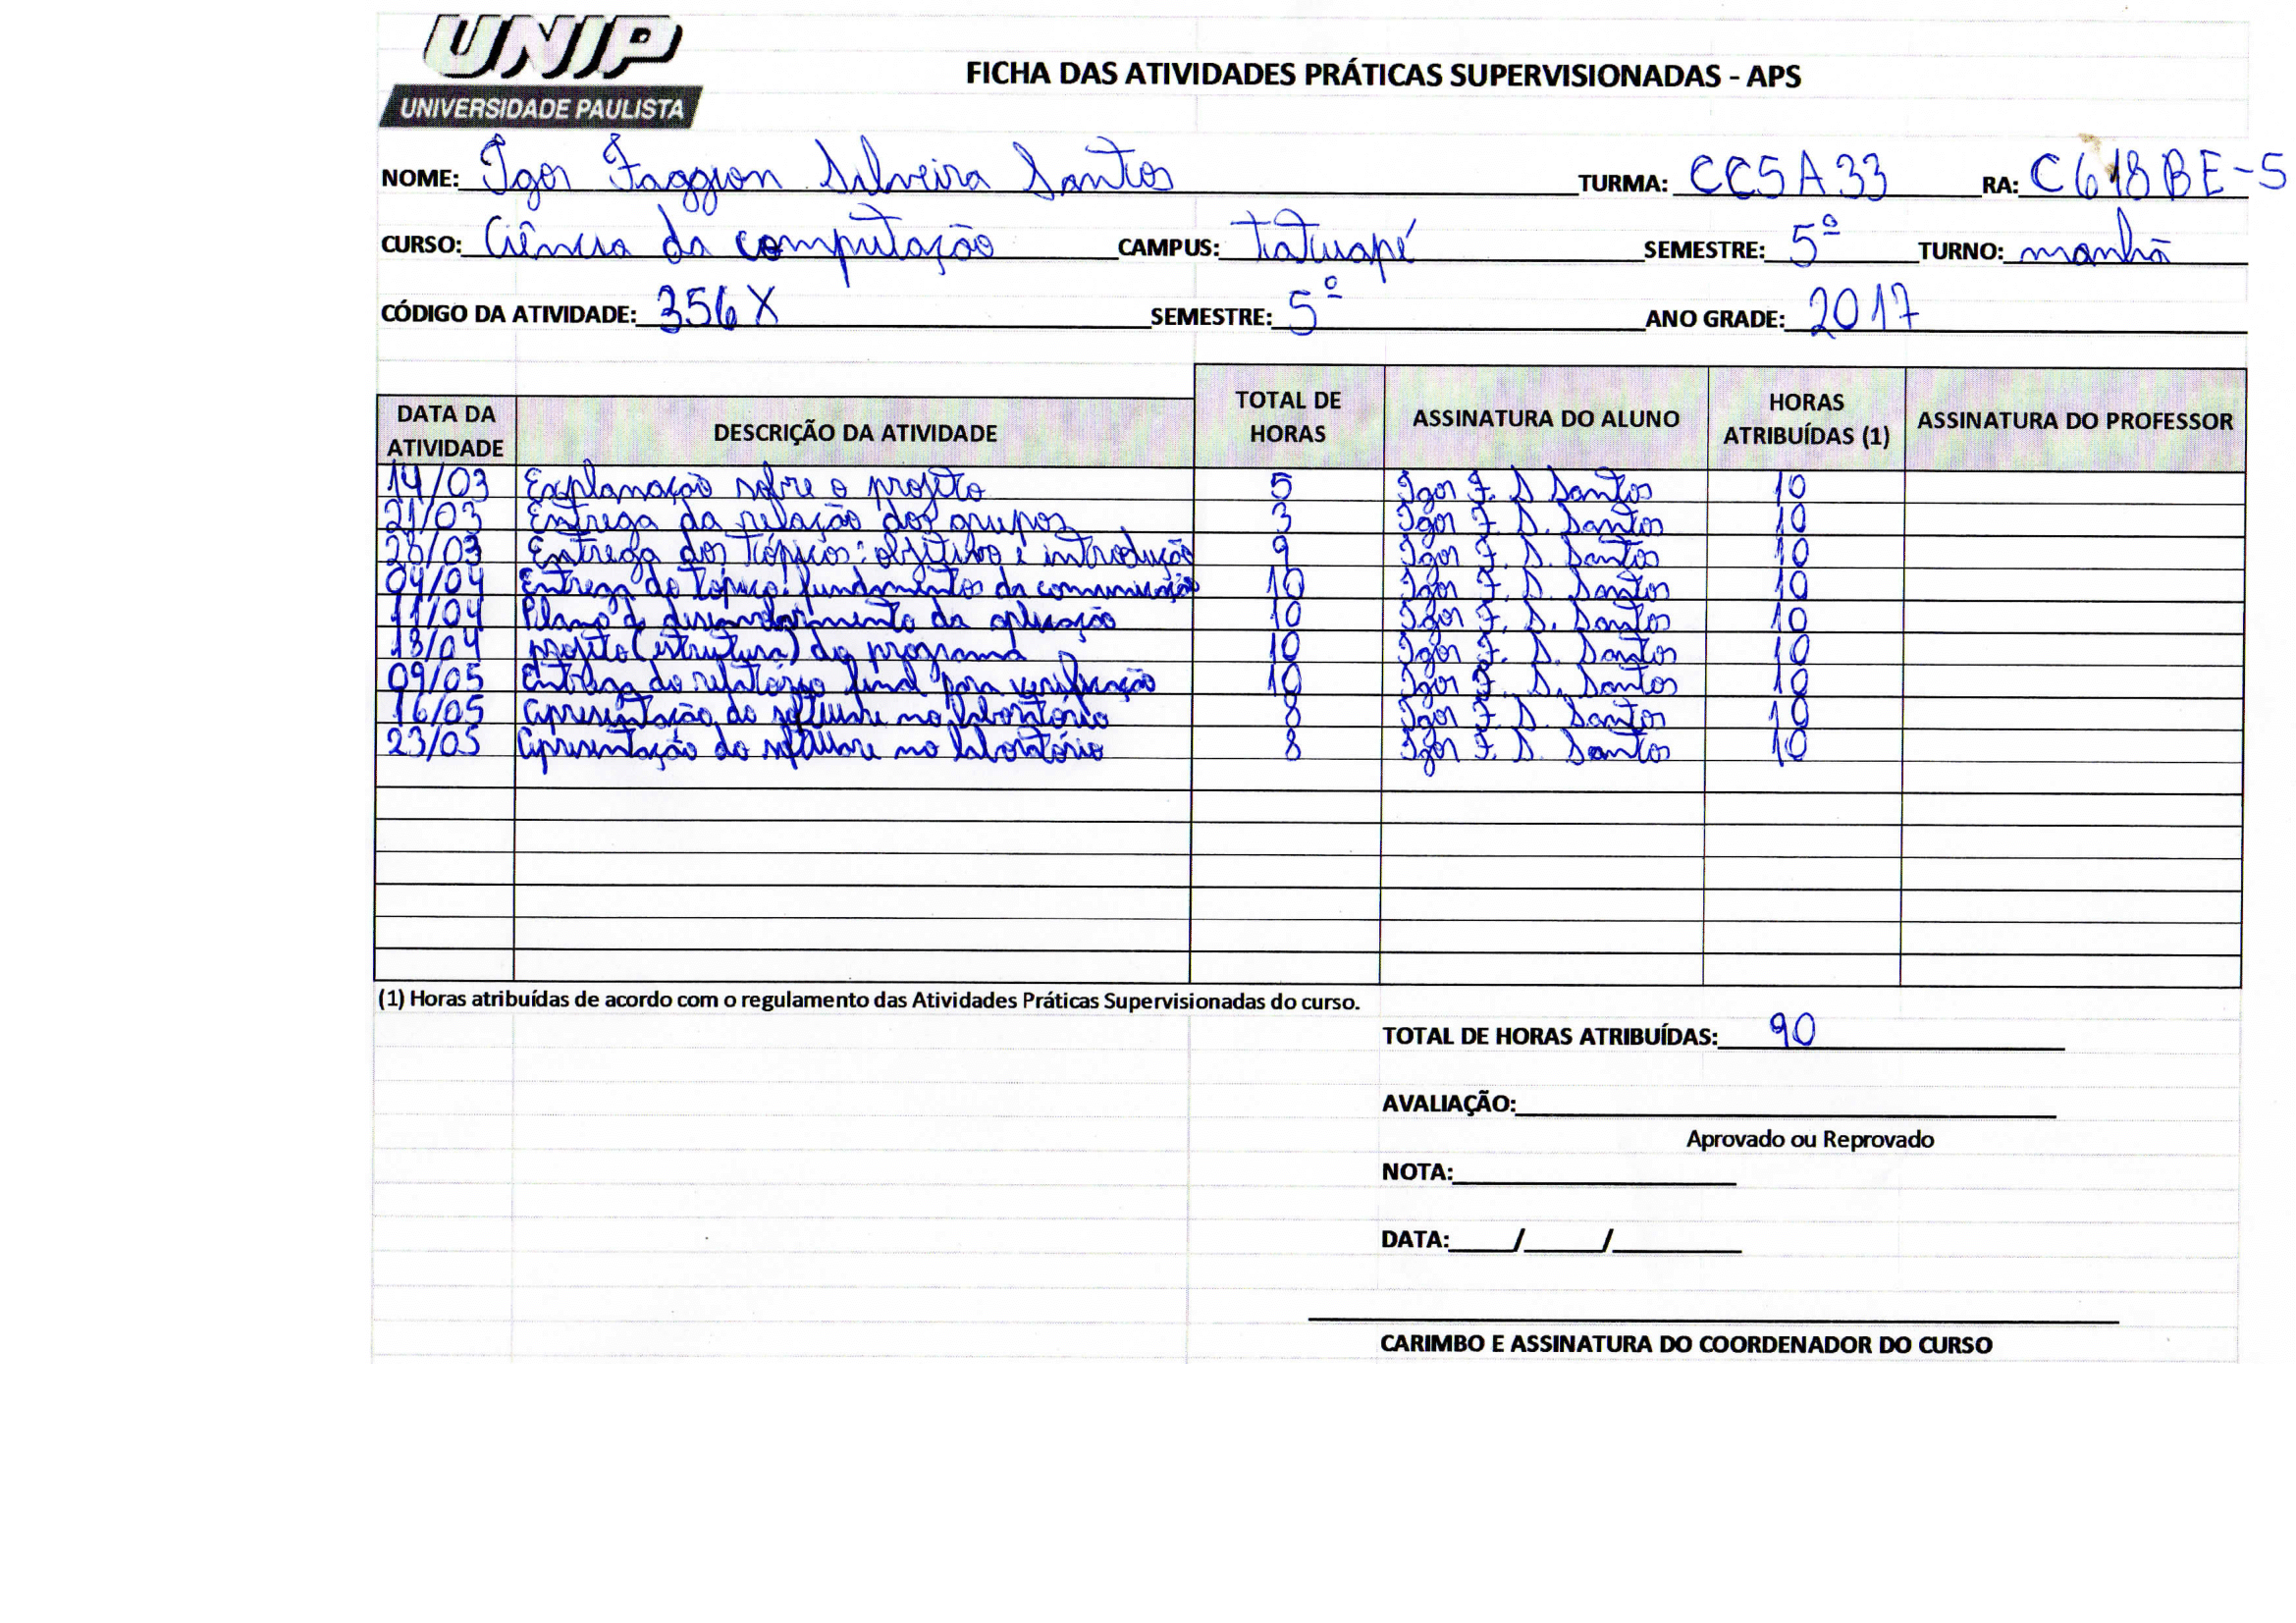 UNIP
UNIVERSIDADE PAULISTA
FICHA DAS ATIVIDADES PRÁTICAS SUPERVISIONADAS - APS
NOME: Igor Faggion Silveira Santos TURMA: CC5A33 RA: C618BE-5
CURSO: Ciência da computação CAMPUS: Tatuapé SEMESTRE: 5º TURNO: manhã
CÓDIGO DA ATIVIDADE: 356X SEMESTRE: 5º ANO GRADE: 2017
DATA DA ATIVIDADE DESCRIÇÃO DA ATIVIDADE TOTAL DE HORAS ASSINATURA DO ALUNO HORAS ATRIBUÍDAS (1) ASSINATURA DO PROFESSOR
14/03 Explanação sobre o projeto 5 Igor F. S Santos 10
21/03 Entrega da relação dos grupos 3 Igor F. S. Santos 10
28/03 Entrega dos tópicos: objetivo e introdução 9 Igor F. S. Santos 10
04/04 Entrega do tópico: fundamentos da comunicação 10 Igor F. S. Santos 10
11/04 Plano de desenvolvimento da aplicação 10 Igor F. S. Santos 10
18/04 projeto (estrutura) do programa 10 Igor F. S. Santos 10
09/05 Entrega do relatório final para verificação 10 Igor F. S. Santos 10
16/05 apresentação do software no laboratório 8 Igor F. S. Santos 10
23/05 apresentação do software no laboratório 8 Igor F. S. Santos 10
(1) Horas atribuídas de acordo com o regulamento das Atividades Práticas Supervisionadas do curso.
TOTAL DE HORAS ATRIBUÍDAS: 90
AVALIAÇÃO:
Aprovado ou Reprovado
NOTA:
DATA: / /
CARIMBO E ASSINATURA DO COORDENADOR DO CURSO